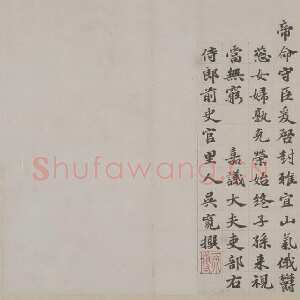 帝命守臣爰啓封雅宜山氣俄鬱
慈女婦孰克榮始終子孫来視
當無窮 嘉議大夫吏部右
侍郎前史官里人吳寬撰
Shufawang